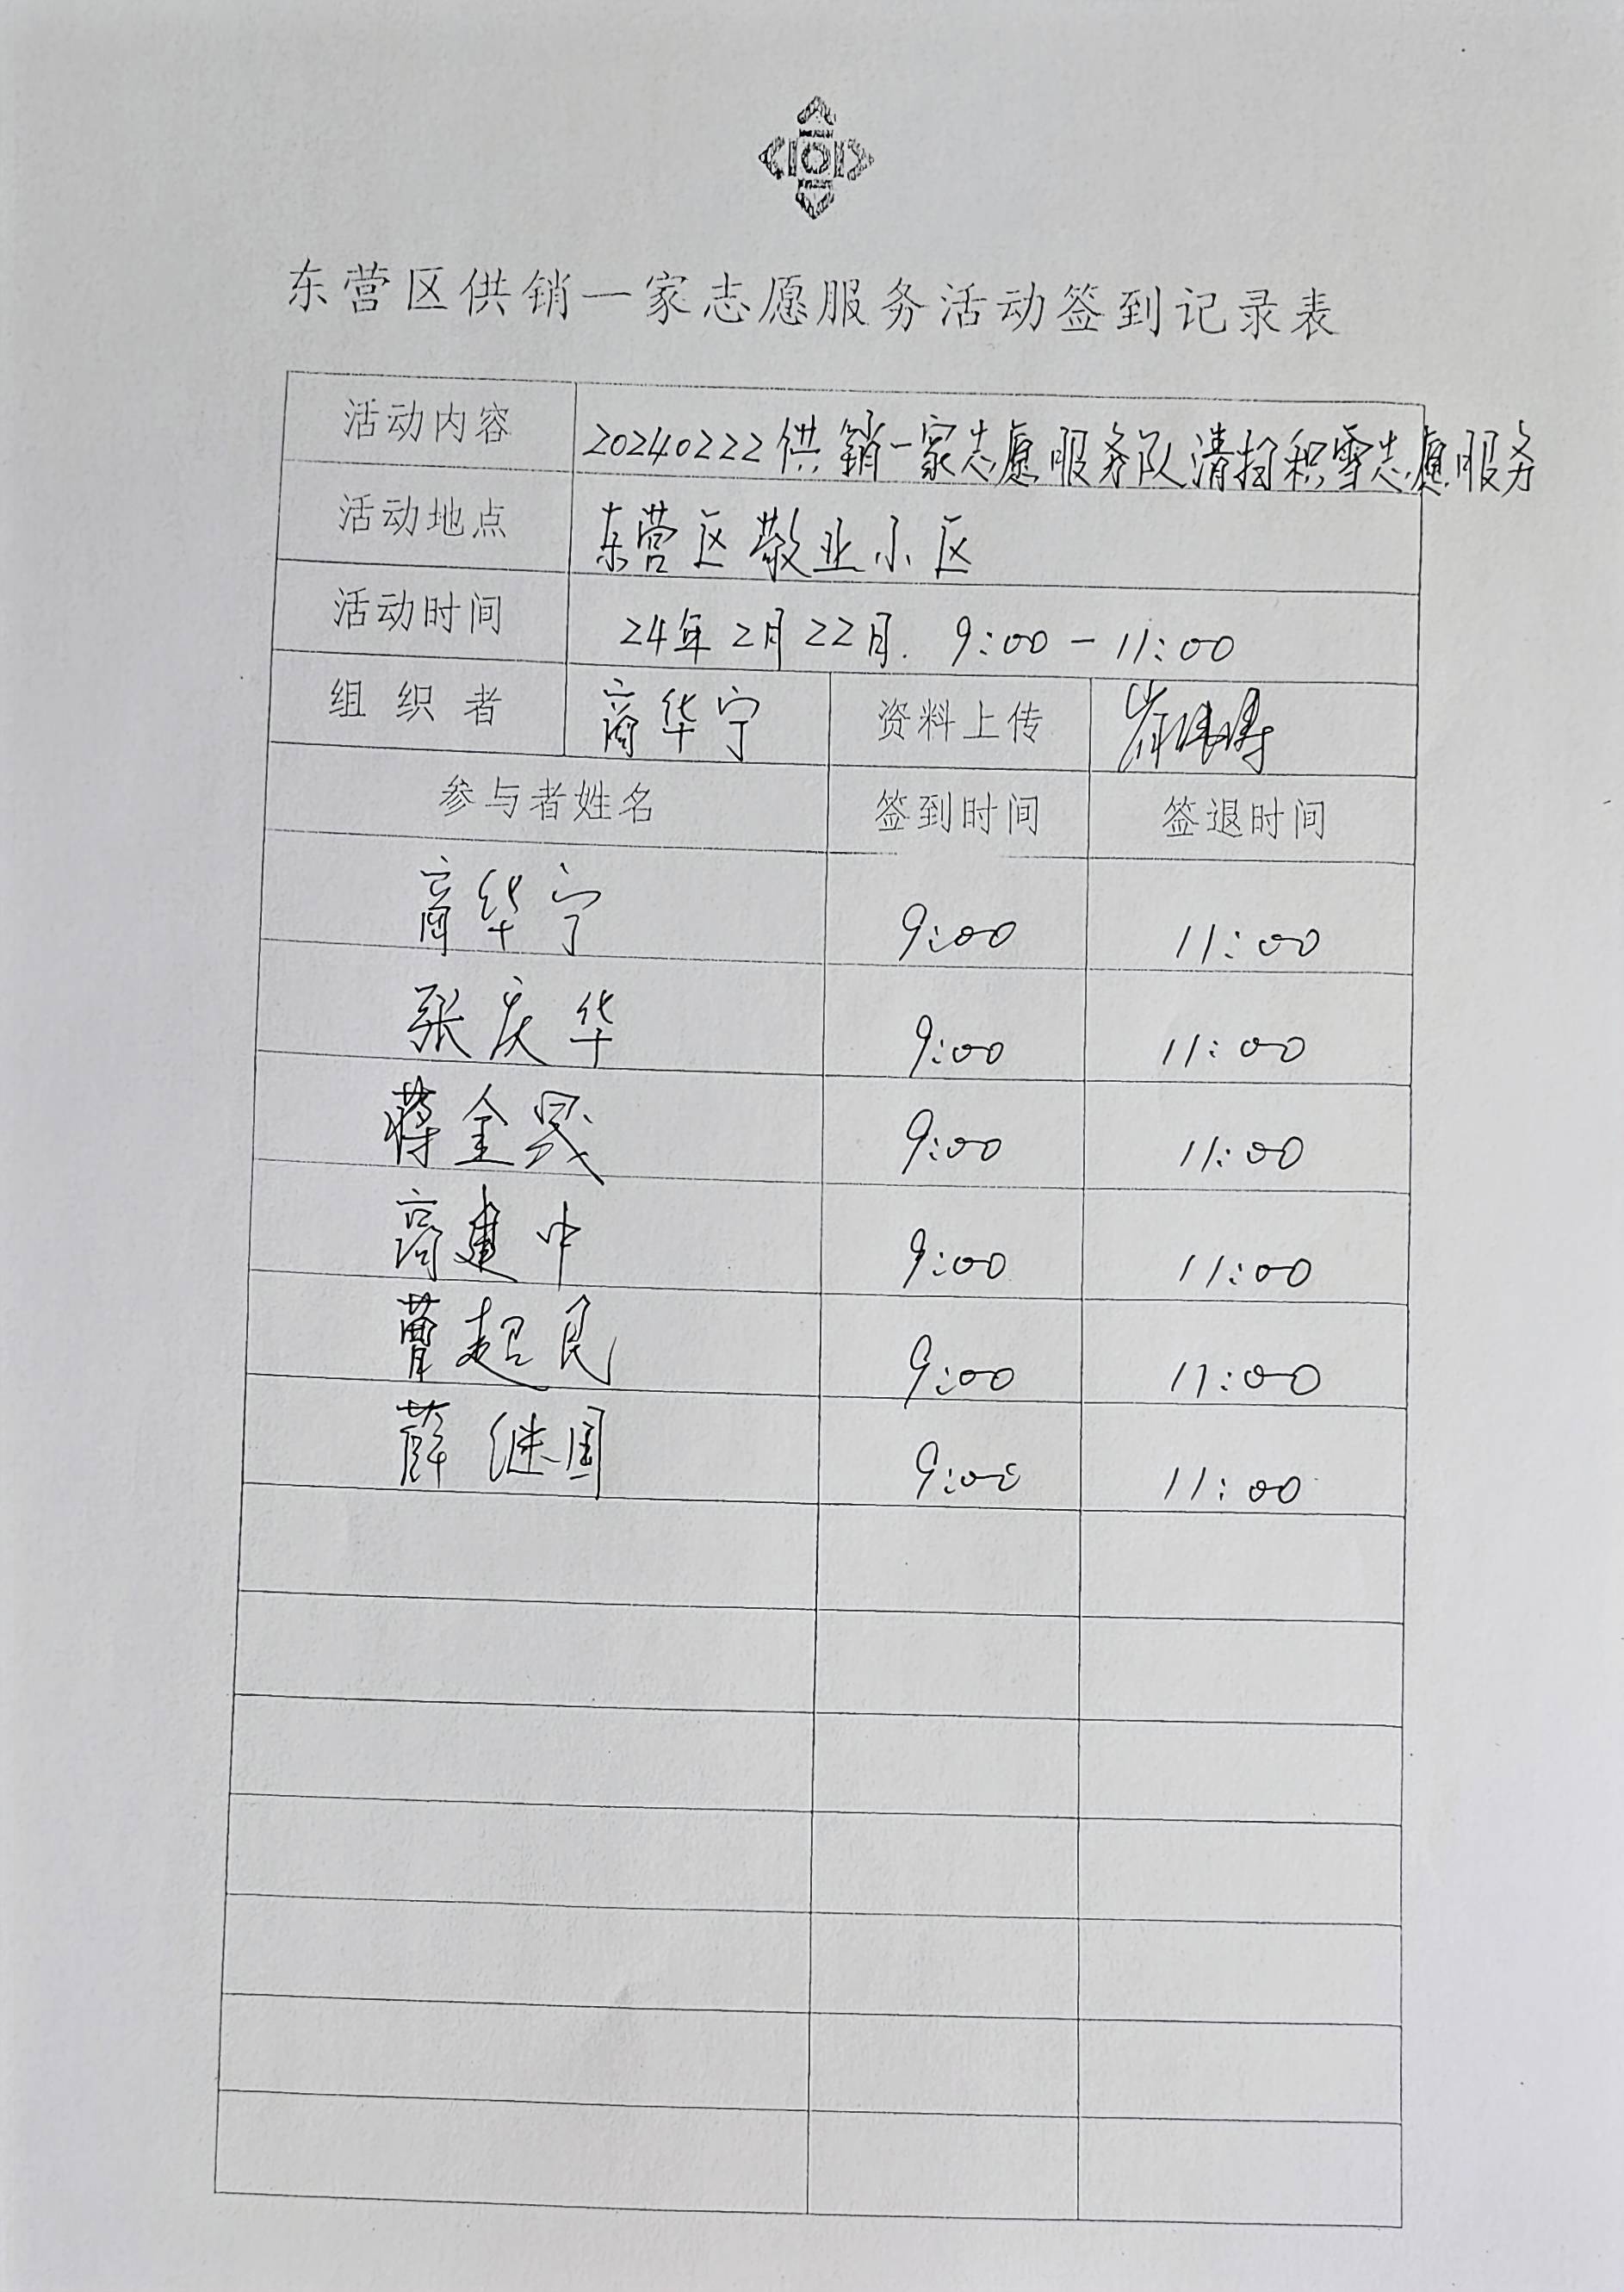 东营区供销一家志愿服务活动签到记录表
活动内容 20240222供销一家志愿服务队清扫积雪志愿服务
活动地点 东营区敬业小区
活动时间 24年2月22日. 9:00-11:00
组织者 商华宁 资料上传
参与者姓名 签到时间 签退时间
商华宁 9:00 11:00
张庆华 9:00 11:00
蒋金 9:00 11:00
商建中 9:00 11:00
曹起民 9:00 11:00
薛继国 9:00 11:00